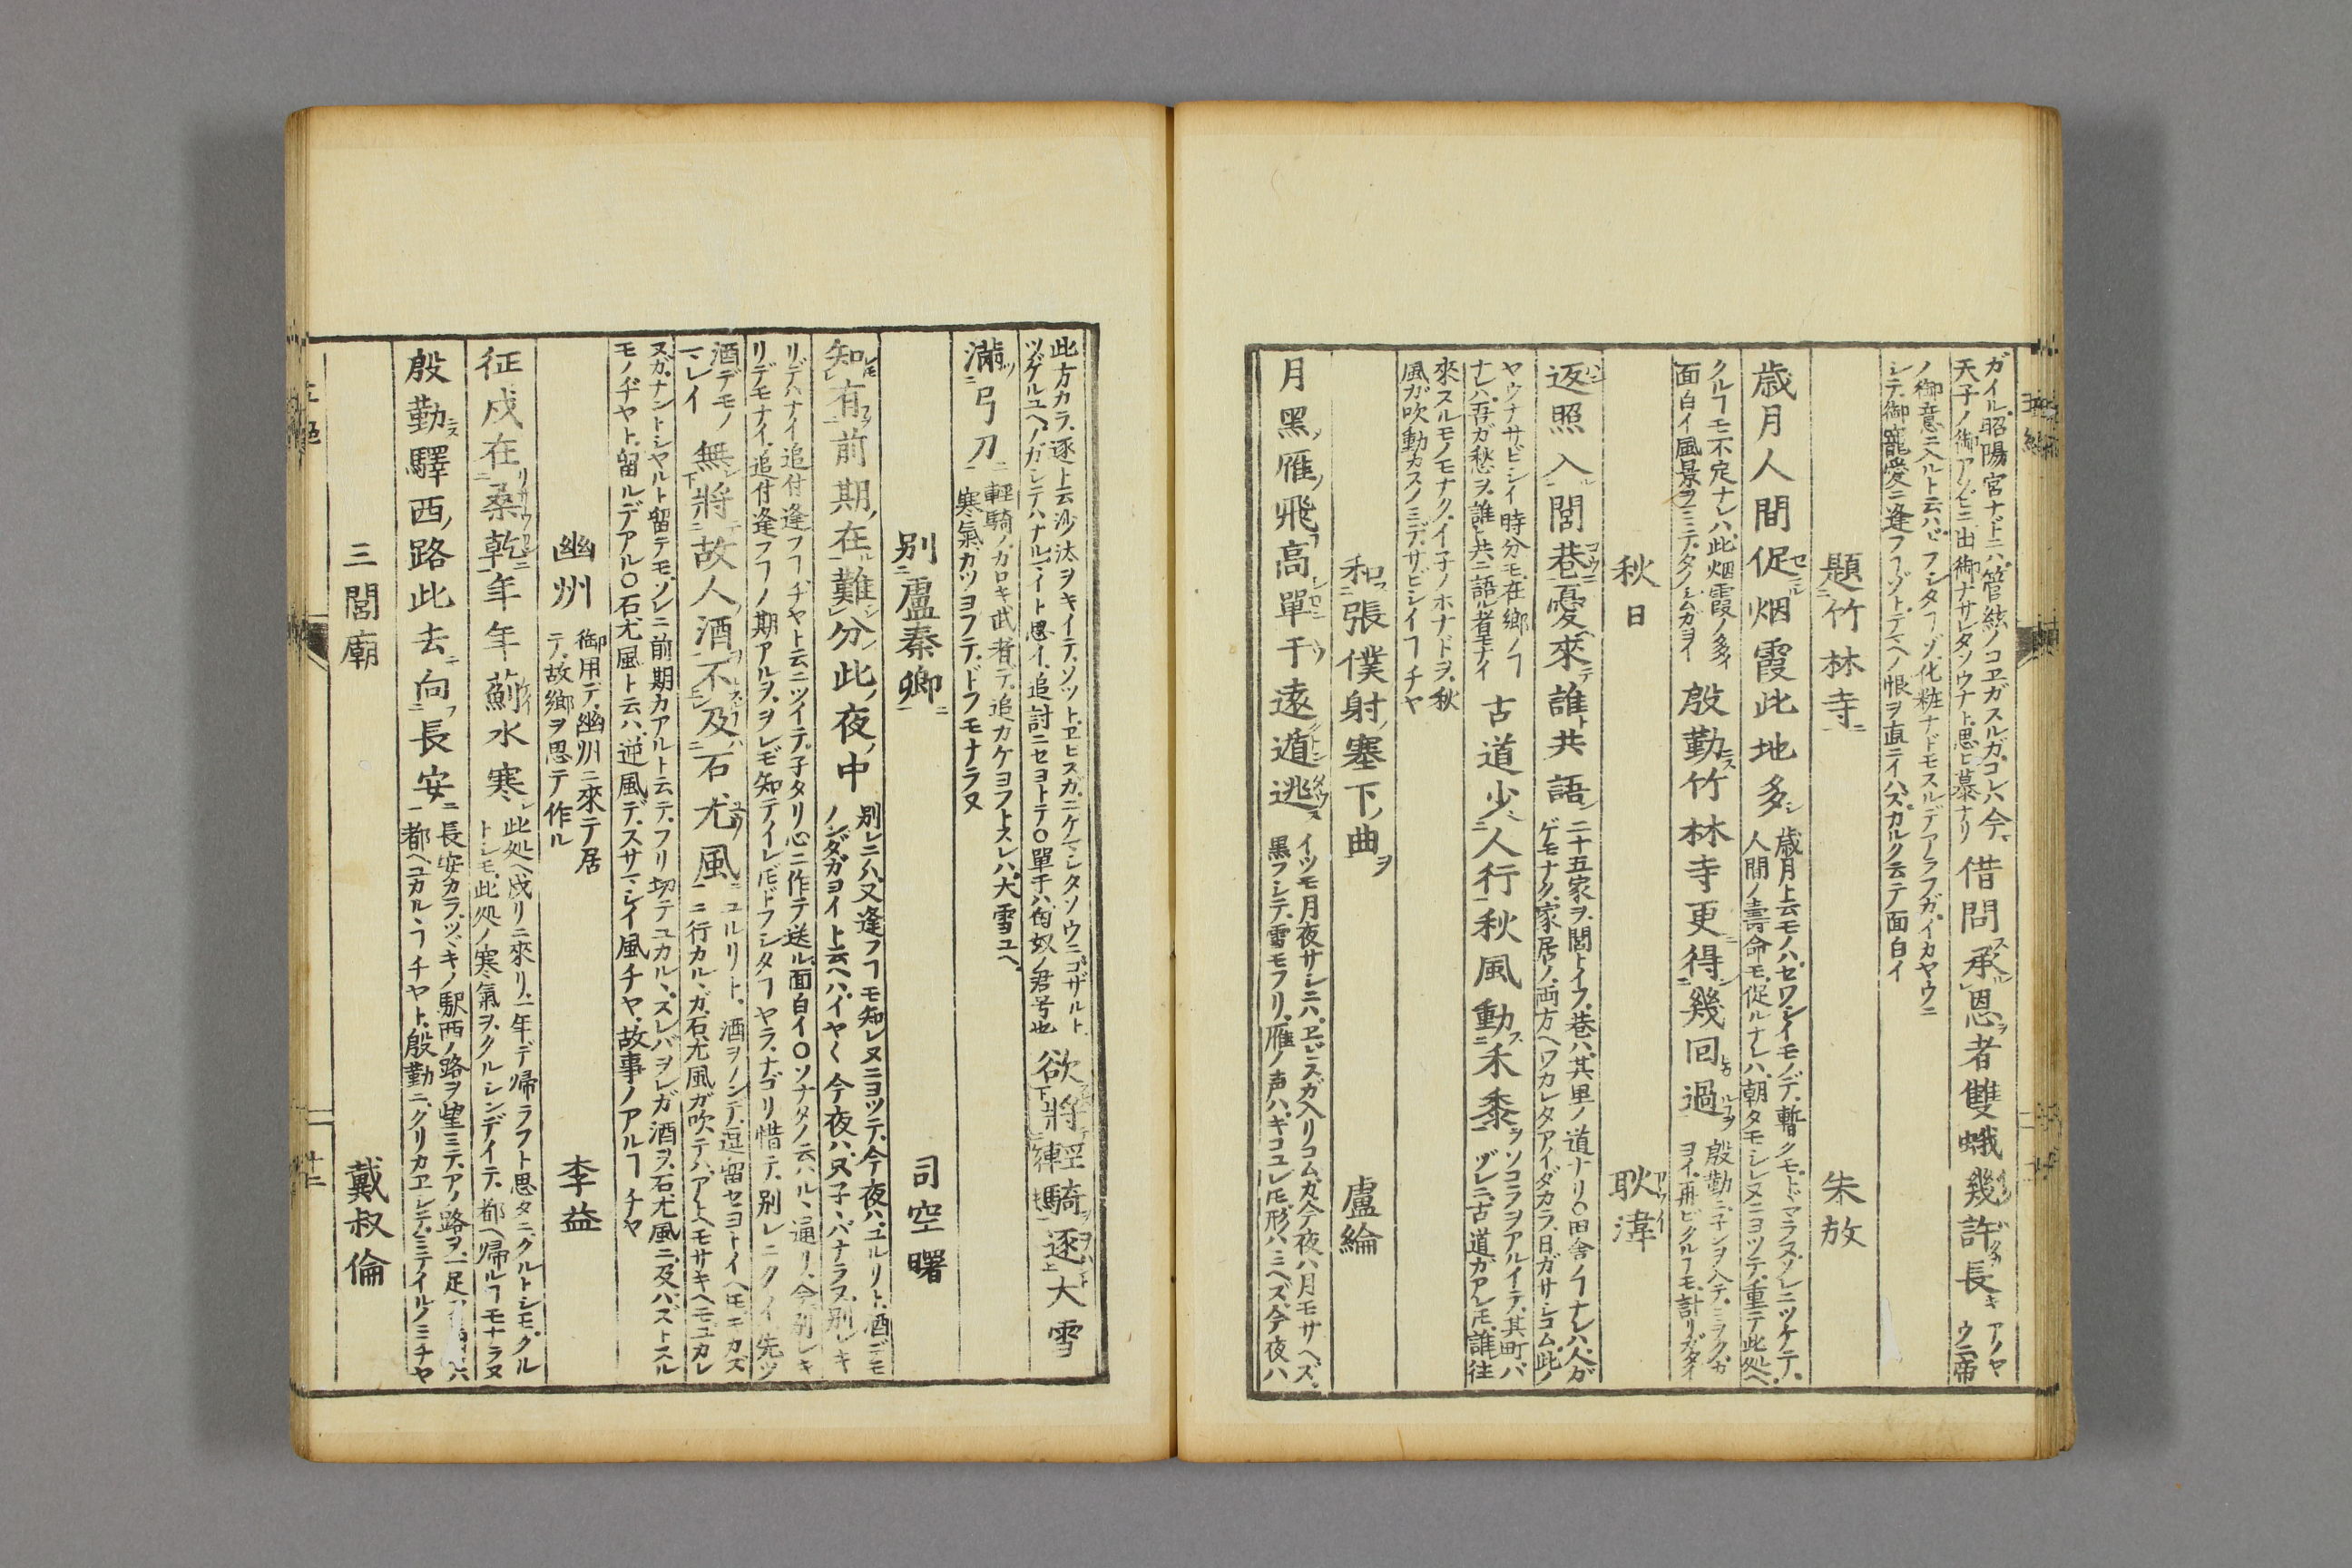 ガイル、昭陽宮ナドニハ、管絃ノコヱガスルガ、コレハ今、
天子ノ御アソビニ出御ナサレタソウナト、思ヒ慕ナリ
借問承恩者雙蛾幾許長
アノヤ
ウニ帝
ノ御意ニ入ルト云ハ、ドフシタヿゾ、化粧ナドモスルデアラフガ、イカヤウニ
シテ、御寵愛ニ逢フヿゾト、テヘノ恨ヲ直ニイハズ、カルク云テ面白イ
題竹林寺 朱放
歳月人間促烟霞此地多
歳月ト云モノハ、セワシイモノデ、暫クモ、トドマラヌ、ソレニツケテ、
人間ノ壽命モ、促ルナレハ、朝タモシレヌニヨツテ、重テ此処ヘ、
クルヿモ、不定ナレハ、此烟霞ノ多イ
面白イ風景ヲミテ、タノシムガヨイ
殷勤竹林寺更得幾回過
殷勤ニ、子ンヲ入テ、ミヲクガ
ヨイ、再ビクルヿモ、計リガタイ
秋日 耿湋
返照入閭巷憂來誰共語
二十五家ヲ、閭トイフ、巷ハ、其里ノ道ナリ〇田舎ノヿナレハ、人ガ
ゲモナク、家居ノ、両方ヘワカレタアイダカラ、日ガサシコム、此ノ
ヤウナサビシイ時分モ、在郷ノヿ
ナレハ、吾ガ愁ヲ、誰ト共ニ語ル者モナイ
古道少人行秋風動禾黍
ソコラヲアルイテ、其町バ
ヅレニ、古道ガアレ𪜈、誰往
來スルモノモナク、イ子ノホナドヲ、秋
風ガ吹動カスノミデ、サビシイヿチヤ
和張僕射塞下曲 盧綸
月黑雁飛高單于遠遁逃
イツモ月夜サシニハ、ヱビスガ入リコム、カ今夜ハ月モサヘズ、
黒フシテ、雪モフリ、雁ノ声ハ、ギコユレ𪜈、形ハミヘズ、今夜ハ
此方カラ、逐ト云沙汰ヲキイテ、ソツト、ヱヒスガ、ニケマシタソウニゴザルト、
ツゲルユヘ、ノガシテハナルマイト思イ、追討ニセヨトテ〇單于ハ、匈奴ノ君号也
欲將輕騎逐大雪
滿弓刀
輕騎ノ、カロキ武者テ、追カケヨフトスレハ、大雪ユヘ、
寒氣カツヨフテ、ドフモナラヌ
別盧秦卿 司空曙
知有前期在難分此夜中
別レニハ、又逢フヿモ知レヌニヨツテ、今夜ハ、ユルリト、酒デモ
ノンダガヨイト云ヘハ、イヤ〱今夜ハ、又子バナラヌ、別レキ
リデハナイ追付逢フヿヂヤト云ニツイテ、子タリ心ニ作テ送ル、面白イ〇ソナタノ云ハルヽ通リ、今別レキ
リデモナイ、追付逢フヿノ期アルヲ、ヲレモ知テイレ𪜈、ドフシタヿヤラ、ナゴリ惜テ、別レニクイ、先ツ
酒デモノ
マレイ
無將故人酒不及石尤風
ユルリト、酒ヲノンデ、逗留セヨトイヘ𪜈、キカズ
ニ行カルヽガ、石尤風ガ吹テハ、アトヘモサキヘモユカレ
ヌガ、ナントシヤルト留テモ、ソレニ前期カアルト云テ、フリ切テユカルヽ、スレバヲレガ酒ヲ、石尤風ニ、及バズトスル
モノヂヤト、留ルデアル〇石尤風ト云ハ、逆風デ、スサマシイ風チヤ、故事ノアルヿチヤ
幽州 李益
御用デ、幽州ニ來テ居
テ、故郷ヲ思テ作ル
征戍在桑乾年年薊水寒
此処ヘ戍リニ來リ、一年デ帰ラフト思タニ、クルトシモ、クル
トシモ、此処ノ寒氣ヲ、クルシンデイテ、都ヘ帰ルヿモナラヌ
殷勤驛西路此去向長安
長安カラ、ツヾキノ駅西ノ路ヲ望ミテ、アノ路ヲ、一足
都ヘユカルヽヿチヤト、殷勤ニ、クリカエシテ、ミテイルノミチヤ
三閭廟 戴叔倫